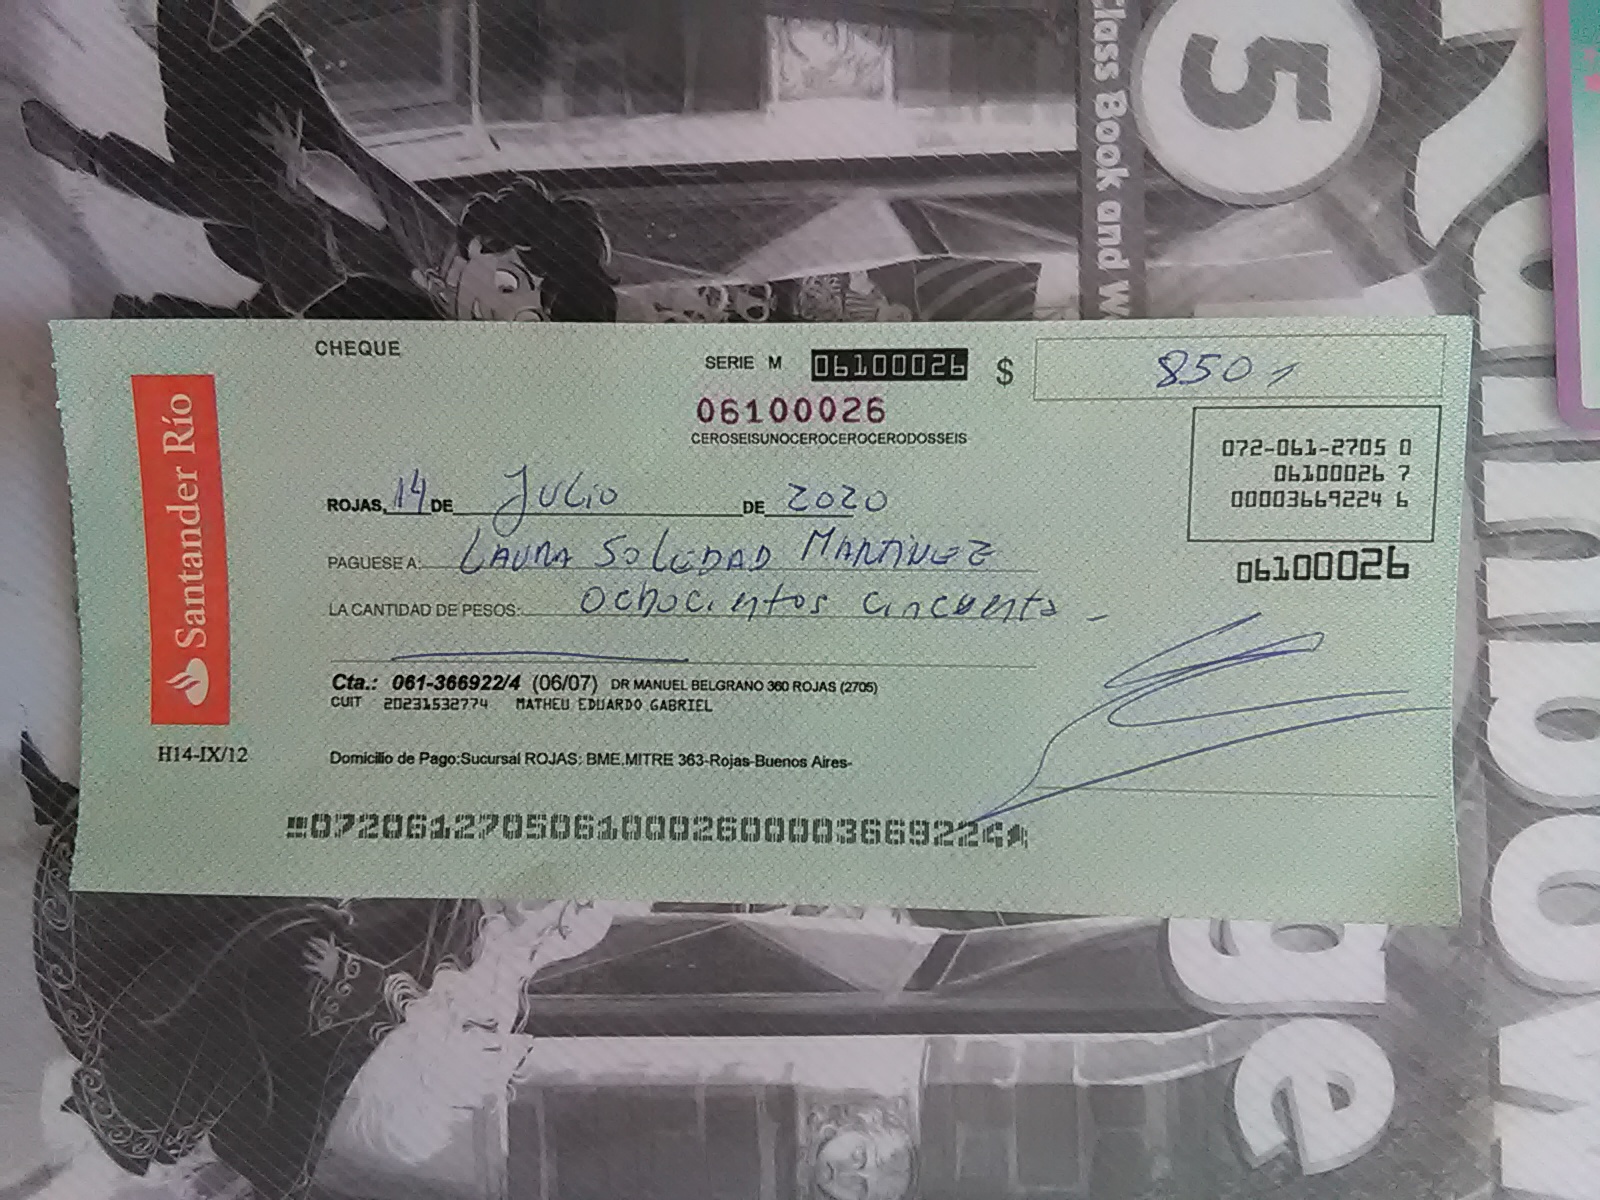 Class Book and W
5
CHEQUE
SERIE M 06100026 $ 850
06100026
CEROSEISUNOCEROCEROCERODOSSEIS
072-061-2705 0
06100026 7
00003669224 6
06100026
Santander Río
ROJAS, 14 DE Julio DE 2020
PAGUESE A: LAURA SOLEDAD MARTINEZ
LA CANTIDAD DE PESOS: Ochocientos cincuenta
Cta.: 061-366922/4 (06/07) DR MANUEL BELGRANO 360 ROJAS (2705)
CUIT 20231532774 MATHEU EDUARDO GABRIEL
H14-IX/12
Domicilio de Pago:Sucursal ROJAS: BME.MITRE 363-Rojas-Buenos Aires-
07206127050610002600003669224